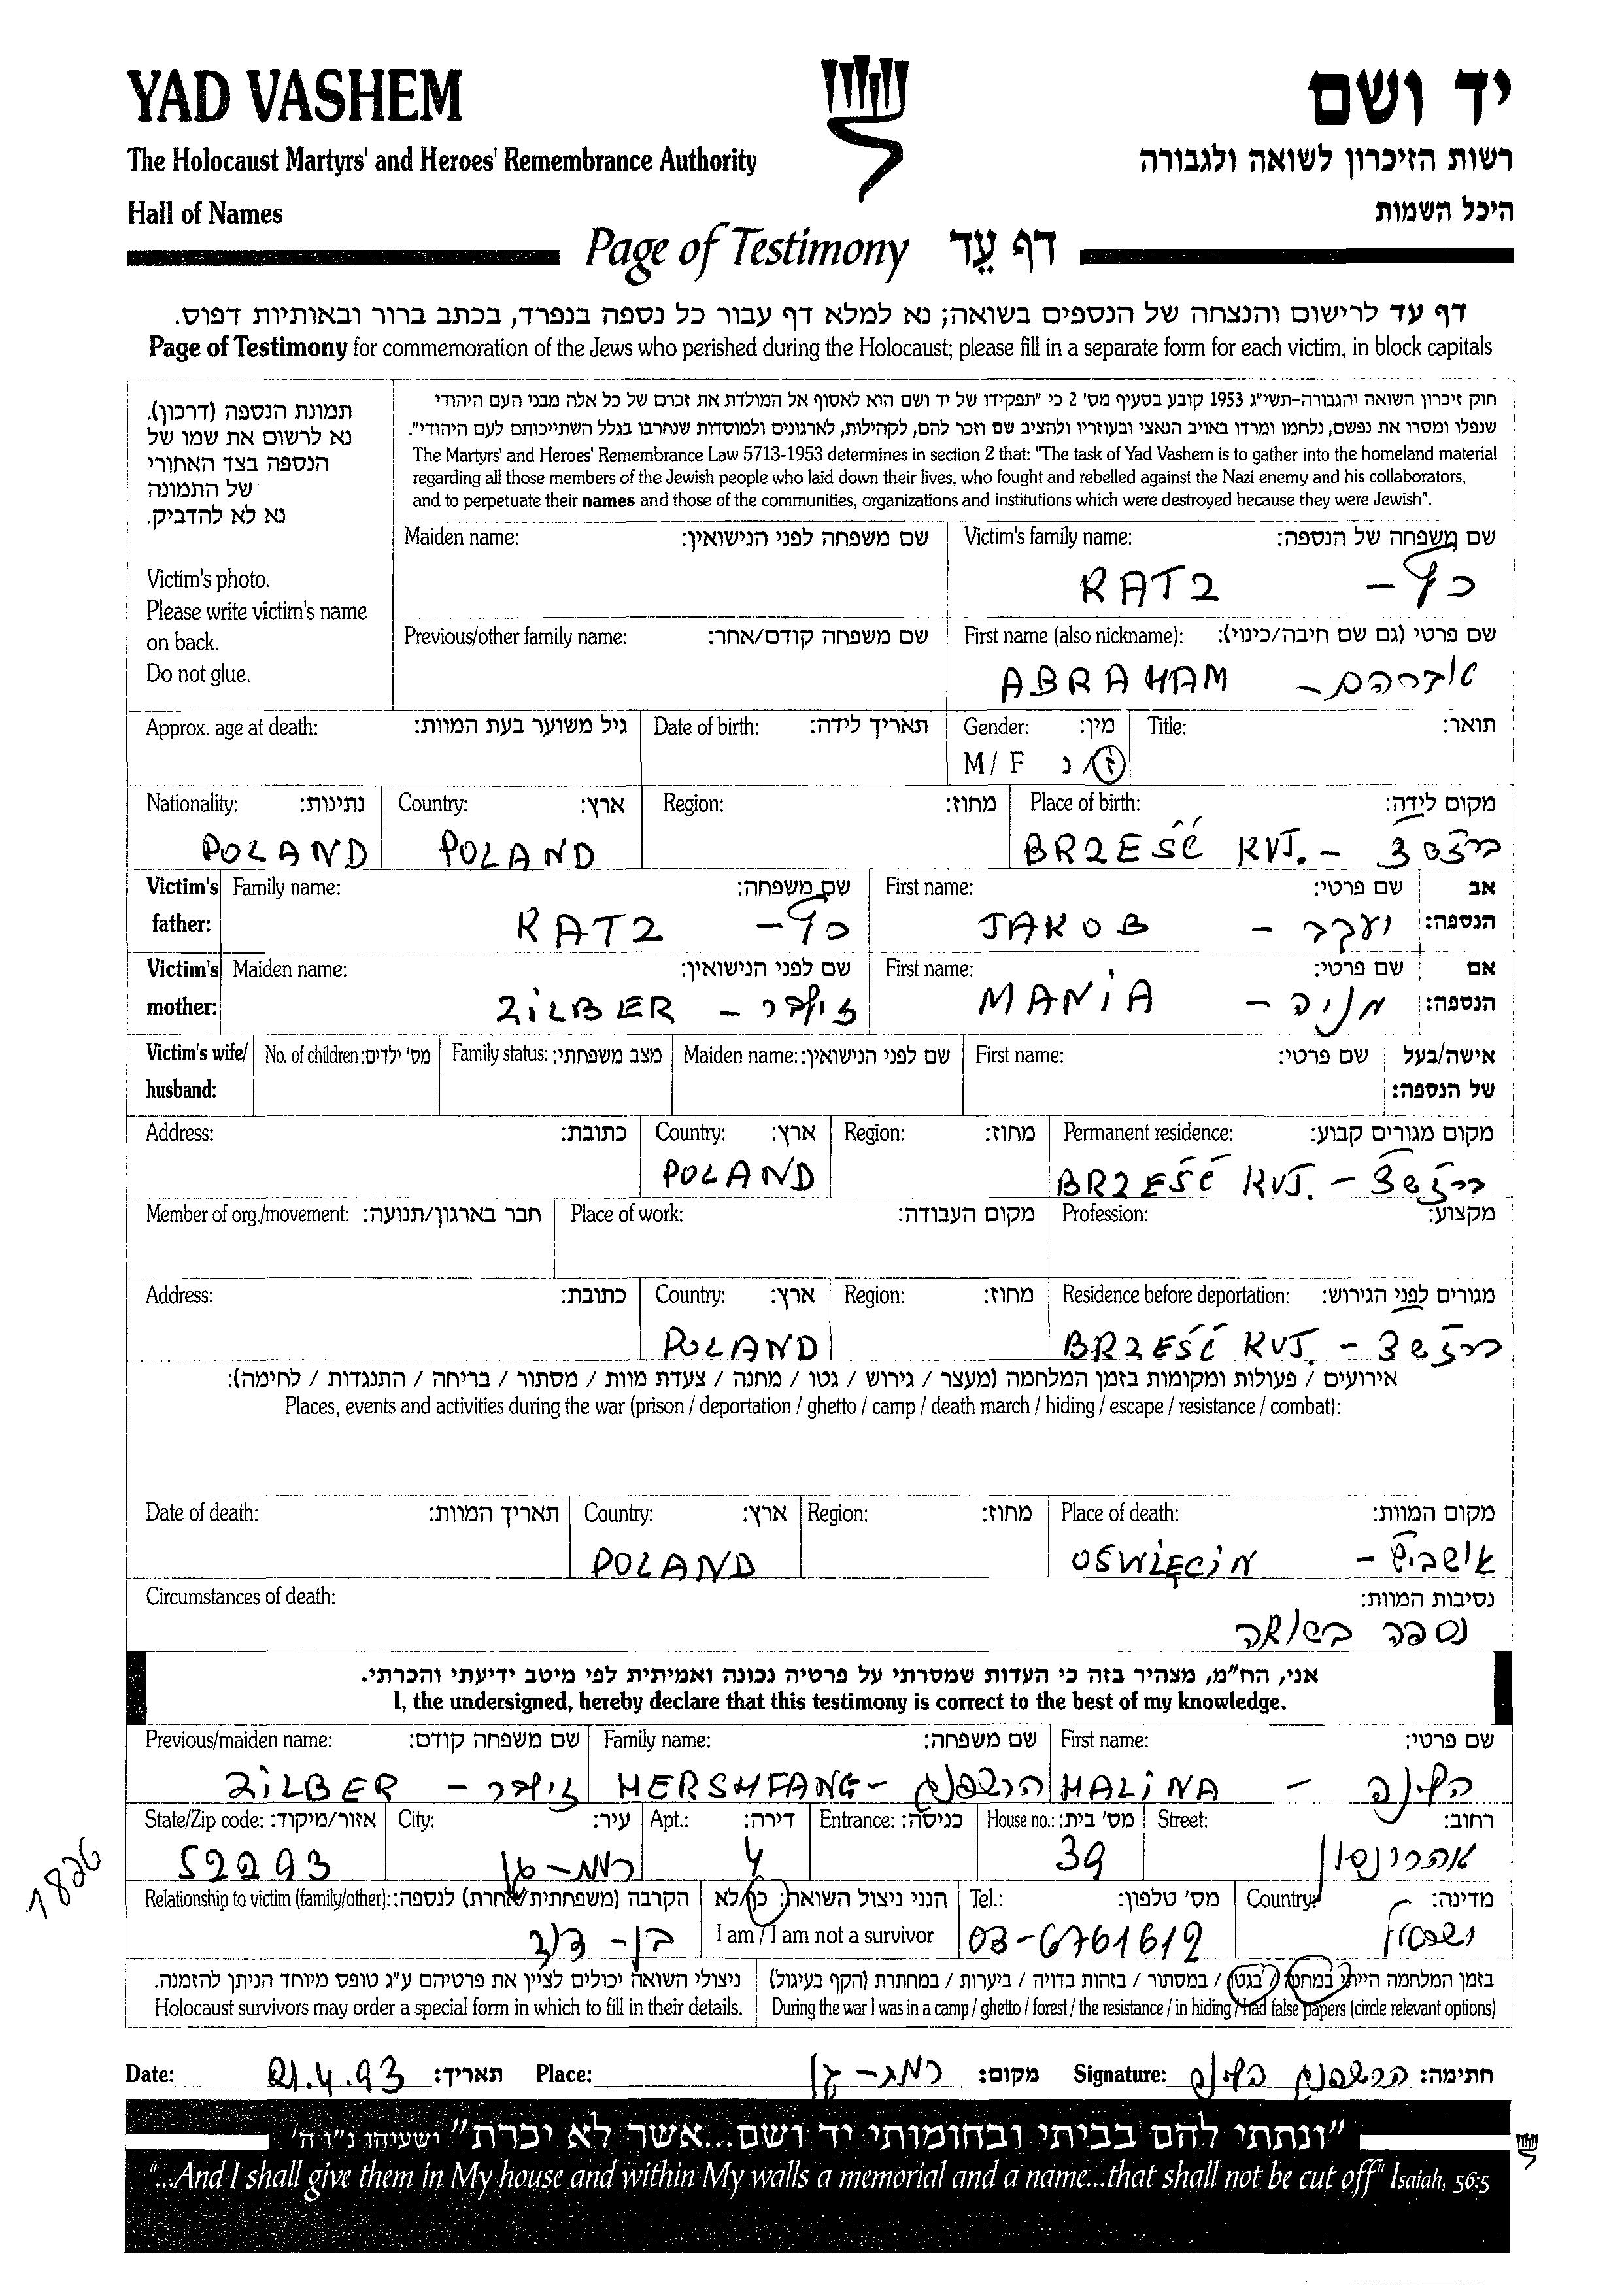 YAD VASHEM
יד ושם
The Holocaust Martyrs' and Heroes' Remembrance Authority
רשות הזיכרון לשואה ולגבורה
Hall of Names
היכל השמות
Page of Testimony דף עֵד
דף עד לרישום והנצחה של הנספים בשואה; נא למלא דף עבור כל נספה בנפרד, בכתב ברור ובאותיות דפוס.
Page of Testimony for commemoration of the Jews who perished during the Holocaust; please fill in a separate form for each victim, in block capitals
תמונת הנספה (דרכון).
נא לרשום את שמו של
הנספה בצד האחורי
של התמונה
נא לא להדביק.
Victim's photo.
Please write victim's name
on back.
Do not glue.
חוק זיכרון השואה והגבורה-תשי"ג 1953 קובע בסעיף מס' 2 כי "תפקידו של יד ושם הוא לאסוף אל המולדת את זכרם של כל אלה מבני העם היהודי
שנפלו ומסרו את נפשם, נלחמו ומרדו באויב הנאצי ובעוזריו ולהציב שם וזכר להם, לקהילות, לארגונים ולמוסדות שנחרבו בגלל השתייכותם לעם היהודי".
The Martyrs' and Heroes' Remembrance Law 5713-1953 determines in section 2 that: "The task of Yad Vashem is to gather into the homeland material
regarding all those members of the Jewish people who laid down their lives, who fought and rebelled against the Nazi enemy and his collaborators,
and to perpetuate their names and those of the communities, organizations and institutions which were destroyed because they were Jewish".
Maiden name: שם משפחה לפני הנישואין: Victim's family name: שם משפחה של הנספה:
KATZ - כץ
Previous/other family name: שם משפחה קודם/אחר: First name (also nickname): שם פרטי (גם שם חיבה/כינוי):
ABRAHAM - אברהם
Approx. age at death: גיל משוער בעת המוות: Date of birth: תאריך לידה: Gender: מין: Title: תואר:
M / F ז/נ
Nationality: נתינות: Country: ארץ: Region: מחוז: Place of birth: מקום לידה:
POLAND POLAND BRZEŚĆ KUJ. -
Victim's father: Family name: שם משפחה: First name: שם פרטי: אב הנספה:
KATZ - כץ JAKOB - יעקב
Victim's mother: Maiden name: שם לפני הנישואין: First name: שם פרטי: אם הנספה:
ZILBER - זילבר MANIA - מניה
Victim's wife/ husband: No. of children: מס' ילדים: Family status: מצב משפחתי: Maiden name: שם לפני הנישואין: First name: שם פרטי: אישה/בעל של הנספה:
Address: כתובת: Country: ארץ: Region: מחוז: Permanent residence: מקום מגורים קבוע:
POLAND BRZEŚĆ KUJ. -
Member of org./movement: חבר בארגון/תנועה: Place of work: מקום העבודה: Profession: מקצוע:
Address: כתובת: Country: ארץ: Region: מחוז: Residence before deportation: מגורים לפני הגירוש:
POLAND BRZEŚĆ KUJ. -
אירועים / פעולות ומקומות בזמן המלחמה (מעצר / גירוש / גטו / מחנה / צעדת מוות / מסתור / בריחה / התנגדות / לחימה):
Places, events and activities during the war (prison / deportation / ghetto / camp / death march / hiding / escape / resistance / combat):
Date of death: תאריך המוות: Country: ארץ: Region: מחוז: Place of death: מקום המוות:
POLAND OŚWIĘCIM - אושביץ
Circumstances of death: נסיבות המוות:
נספה בשואה
אני, הח"מ, מצהיר בזה כי העדות שמסרתי על פרטיה נכונה ואמיתית לפי מיטב ידיעתי והכרתי.
I, the undersigned, hereby declare that this testimony is correct to the best of my knowledge.
Previous/maiden name: שם משפחה קודם: Family name: שם משפחה: First name: שם פרטי:
ZILBER - זילבר HERSHFANG - הרשפנג HALINA - הלינה
State/Zip code: אזור/מיקוד: City: עיר: Apt.: דירה: Entrance: כניסה: House no.: מס' בית: Street: רחוב:
52293 רמת-גן 4 39 אהרונסון
1826
Relationship to victim (family/other): הקרבה (משפחתית/אחרת) לנספה: הנני ניצול השואה: כן/לא Tel.: מס' טלפון: Country: מדינה:
בן-דוד I am / I am not a survivor 03-6761612 ישראל
ניצולי השואה יכולים לציין את פרטיהם ע"ג טופס מיוחד הניתן להזמנה.
Holocaust survivors may order a special form in which to fill in their details.
בזמן המלחמה הייתי במחנה / בגטו / במסתור / בזהות בדויה / ביערות / במחתרת (הקף בעיגול)
During the war I was in a camp / ghetto / forest / the resistance / in hiding / had false papers (circle relevant options)
Date: 21.4.93 תאריך: Place: רמת-גן מקום: Signature: הרשפנג הלינה חתימה:
"ונתתי להם בביתי ובחומותי יד ושם...אשר לא יכרת" ישעיהו נ"ו ה'
"...And I shall give them in My house and within My walls a memorial and a name...that shall not be cut off" Isaiah, 56:5